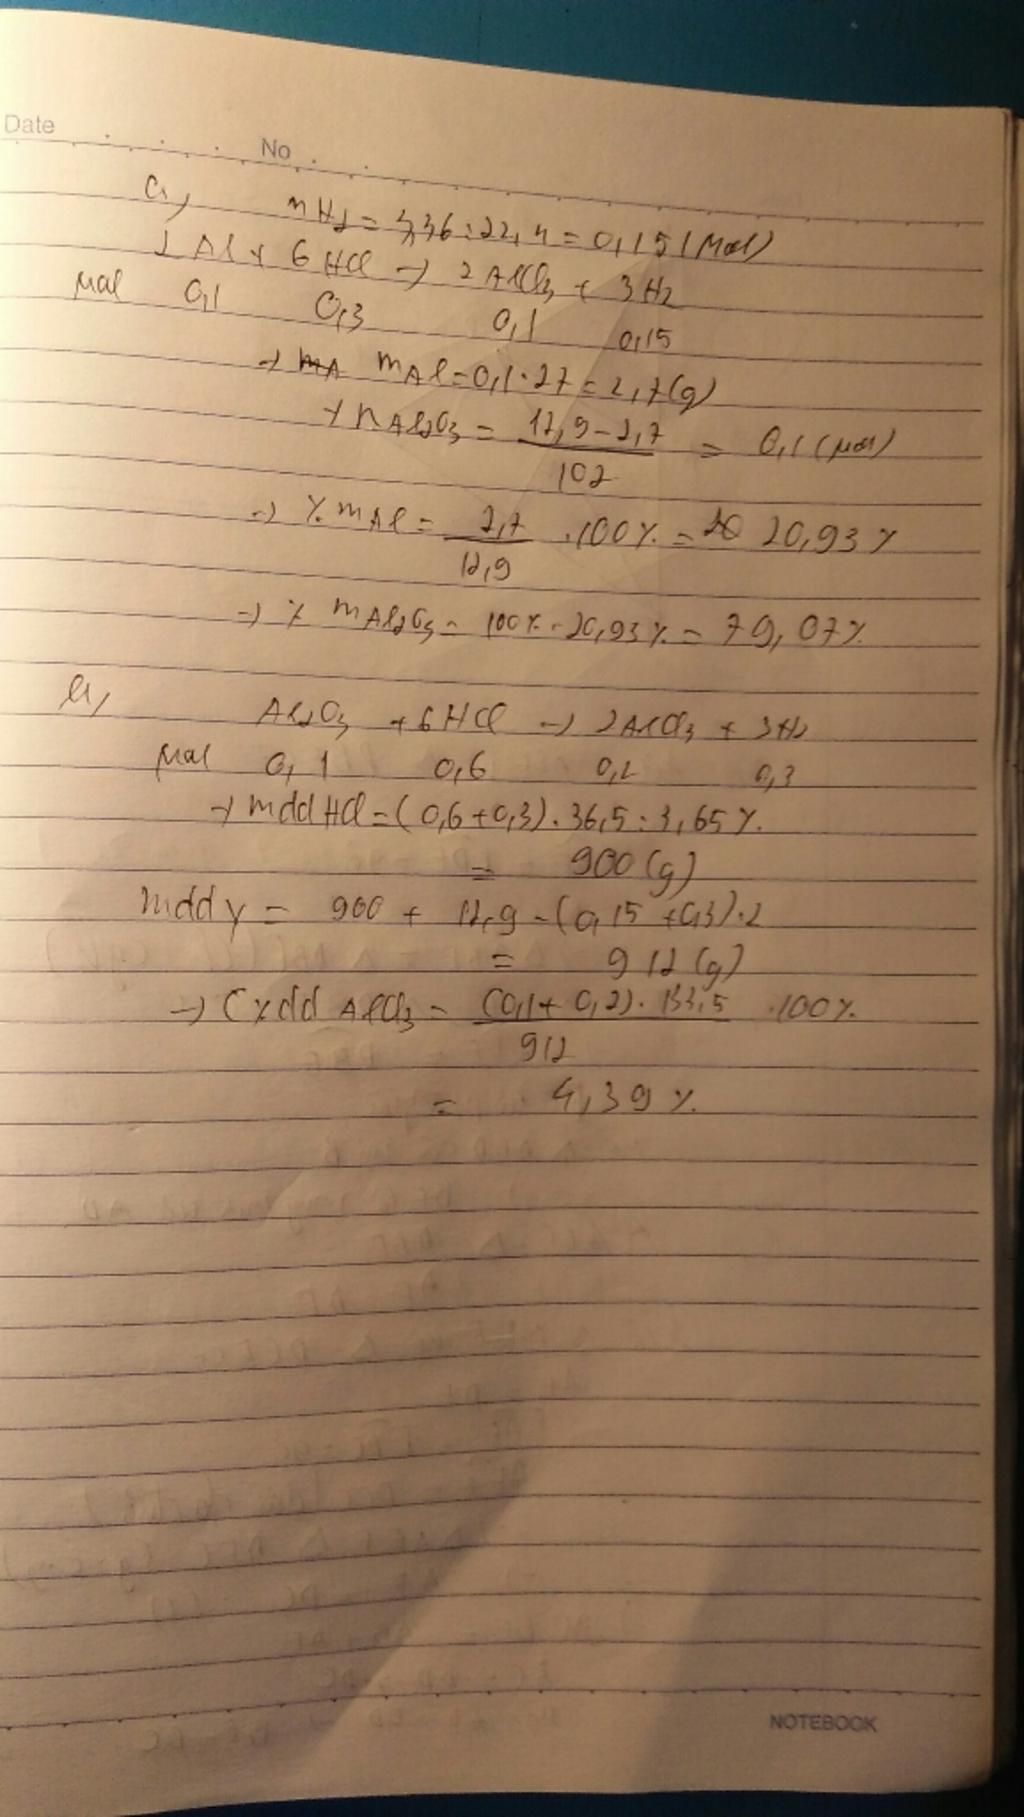 Date
No
a,
nH2 = 3,36 : 22,4 = 0,15 (mol)
2Al + 6HCl → 2AlCl3 + 3H2
mol 0,1 0,3 0,1 0,15
→ mAl = 0,1 . 27 = 2,7 (g)
→ nAl2O3 = (12,9 - 2,7) / 102 = 0,1 (mol)
→ %mAl = 2,7 / 12,9 . 100% = 20,93%
→ %mAl2O3 = 100% - 20,93% = 79,07%
b,
Al2O3 + 6HCl → 2AlCl3 + 3H2
mol 0,1 0,6 0,2 0,3
→ mdd HCl = (0,6 + 0,3) . 36,5 : 3,65%
= 900 (g)
mdd Y = 900 + 12,9 - (0,15 + 0,3) . 2
= 912 (g)
→ C% dd AlCl3 = (0,1 + 0,2) . 133,5 / 912 . 100%
= 4,39%
NOTEBOOK